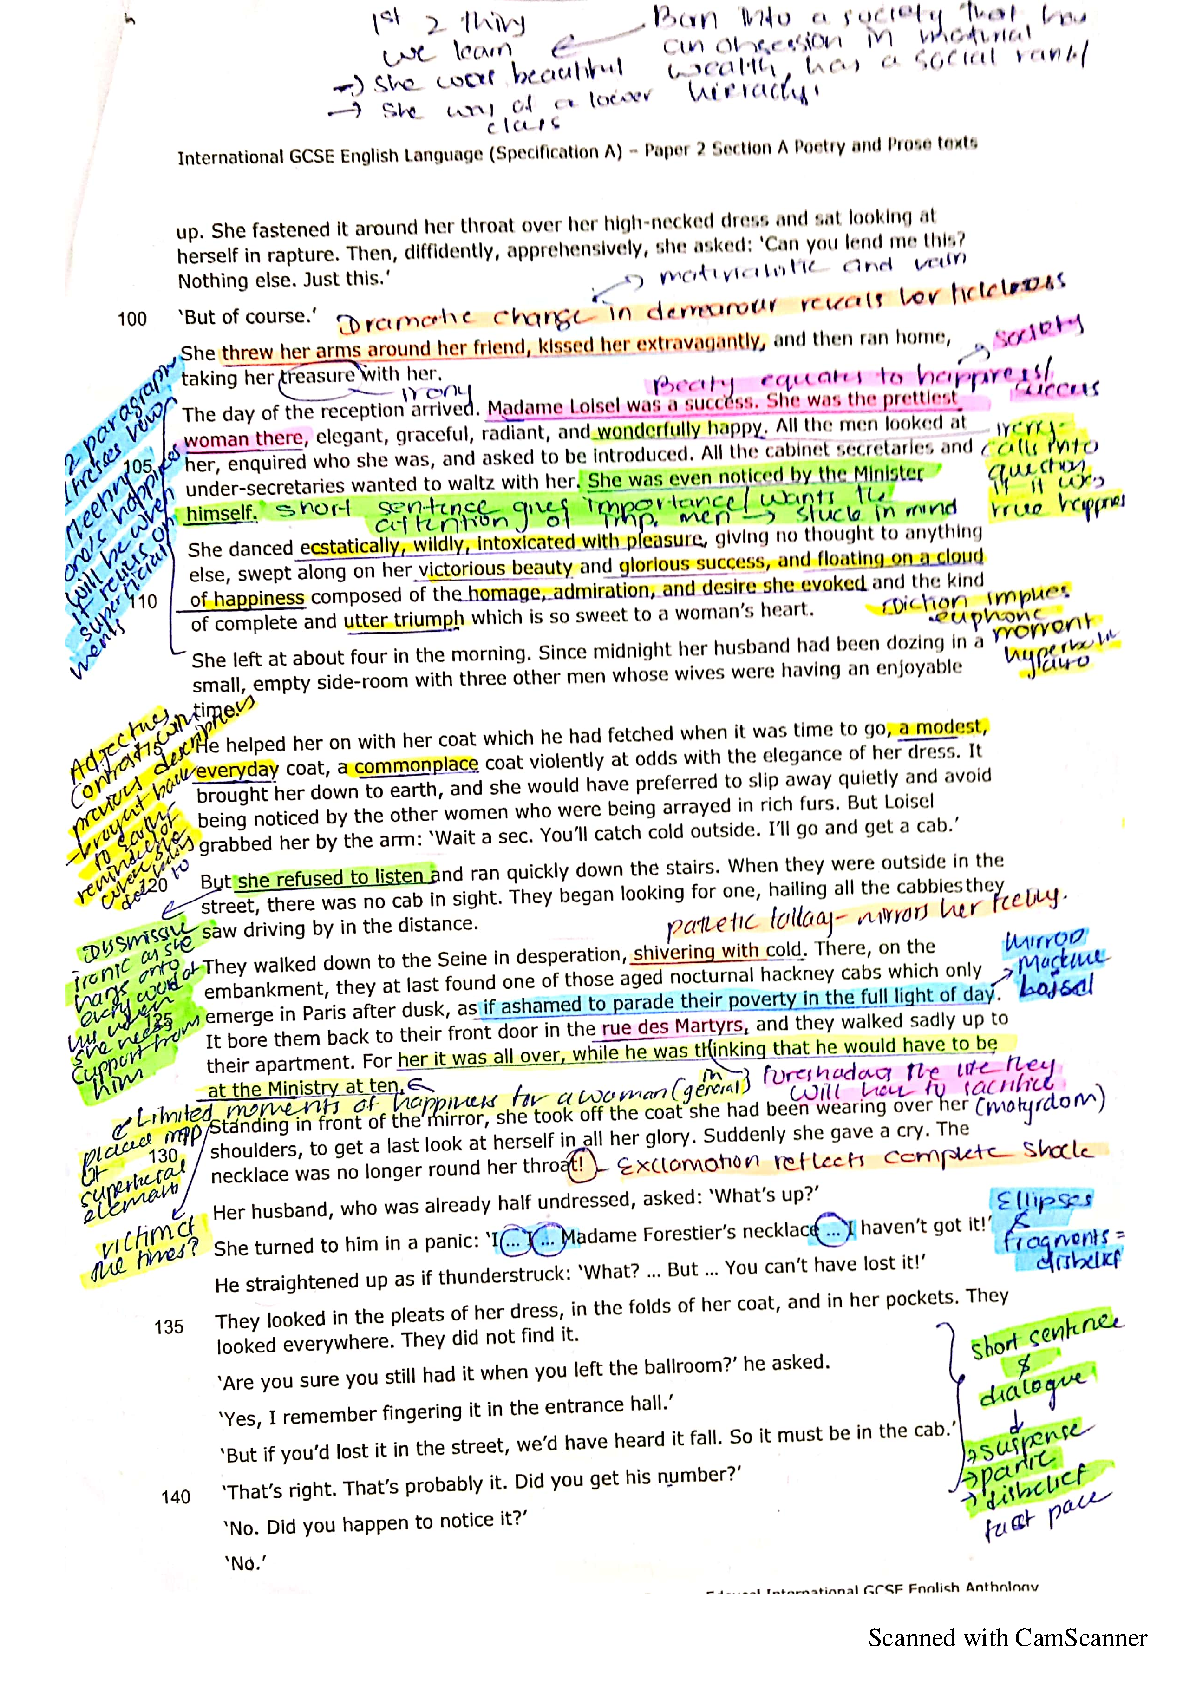 1st 2 thing
we learn
→ she was beautiful
→ she was of a lower
class
Born into a society that has
an obsession in material
wealth, has a social rank/
hiriachy.
International GCSE English Language (Specification A) – Paper 2 Section A Poetry and Prose texts
up. She fastened it around her throat over her high-necked dress and sat looking at
herself in rapture. Then, diffidently, apprehensively, she asked: ‘Can you lend me this?
Nothing else. Just this.’
materialistic and vain
100 ‘But of course.’
Dramatic change in demeanour reveals her
She threw her arms around her friend, kissed her extravagantly, and then ran home,
society
taking her treasure with her.
irony
Beaty equates to happiness/
success
The day of the reception arrived. Madame Loisel was a success. She was the prettiest
woman there, elegant, graceful, radiant, and wonderfully happy. All the men looked at
105 her, enquired who she was, and asked to be introduced. All the cabinet secretaries and
under-secretaries wanted to waltz with her. She was even noticed by the Minister
himself.
short sentence gives importance/ wants the
attention of imp. men → stuck in mind
calls into
question
if it was
true happines
2 paragraph
stresses how
Meeting
one's happines
will be when
it relies on
superficial
ments
She danced ecstatically, wildly, intoxicated with pleasure, giving no thought to anything
else, swept along on her victorious beauty and glorious success, and floating on a cloud
110 of happiness composed of the homage, admiration, and desire she evoked and the kind
of complete and utter triumph which is so sweet to a woman’s heart.
Diction implies
euphoric
moment
She left at about four in the morning. Since midnight her husband had been dozing in a
small, empty side-room with three other men whose wives were having an enjoyable
time.
Adjectives
contrast with
previous descriptions
→ brought back
to
reminder of
115 He helped her on with her coat which he had fetched when it was time to go, a modest,
everyday coat, a commonplace coat violently at odds with the elegance of her dress. It
brought her down to earth, and she would have preferred to slip away quietly and avoid
being noticed by the other women who were being arrayed in rich furs. But Loisel
grabbed her by the arm: ‘Wait a sec. You’ll catch cold outside. I’ll go and get a cab.’
120 But she refused to listen and ran quickly down the stairs. When they were outside in the
street, there was no cab in sight. They began looking for one, hailing all the cabbies they
saw driving by in the distance.
patetic fallacy – mirrors her feeling.
Dismissive
ironic as she
hangs onto
every word of
his when
she needs
support from
him
They walked down to the Seine in desperation, shivering with cold. There, on the
embankment, they at last found one of those aged nocturnal hackney cabs which only
125 emerge in Paris after dusk, as if ashamed to parade their poverty in the full light of day.
mirror
Loisel
It bore them back to their front door in the rue des Martyrs, and they walked sadly up to
their apartment. For her it was all over, while he was thinking that he would have to be
at the Ministry at ten.
foreshadow the life they
will have to sacrifice
(motyrdom)
Limited moments of happiness for a woman (in general)
placed
superficial
elements
victim of
the times?
Standing in front of the mirror, she took off the coat she had been wearing over her
130 shoulders, to get a last look at herself in all her glory. Suddenly she gave a cry. The
necklace was no longer round her throat!
Exclamation reflects complete shock
Her husband, who was already half undressed, asked: ‘What’s up?’
She turned to him in a panic: ‘I ... ... Madame Forestier’s necklace ... I haven’t got it!’
Ellipses
&
fragments =
disbelief
He straightened up as if thunderstruck: ‘What? ... But ... You can’t have lost it!’
135 They looked in the pleats of her dress, in the folds of her coat, and in her pockets. They
looked everywhere. They did not find it.
‘Are you sure you still had it when you left the ballroom?’ he asked.
‘Yes, I remember fingering it in the entrance hall.’
‘But if you’d lost it in the street, we’d have heard it fall. So it must be in the cab.’
140 ‘That’s right. That’s probably it. Did you get his number?’
‘No. Did you happen to notice it?’
‘No.’
short sentence
&
dialogue
↓
→ suspense
→ panic
→ disbelief
fast pace
Edexcel International GCSE English Anthology
Scanned with CamScanner